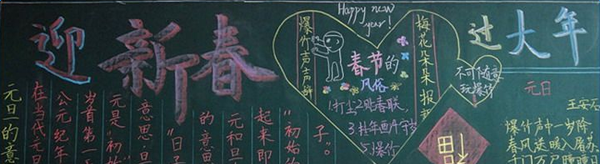 迎新春
Happy new year!
爆竹声声辞
梅花朵朵报
春节的
风俗
1打尘2贴春联
3挂年画4守岁
5爆竹
过大年
不可随意
玩爆竹
元日
王安石
爆竹声中一岁除
春风送暖入屠苏
福
元旦的意
在当代元旦
公元纪年
岁首第一
元是"初始
意思旦
"日子
的意苗
元和旦
起来即
"初始的
子"。